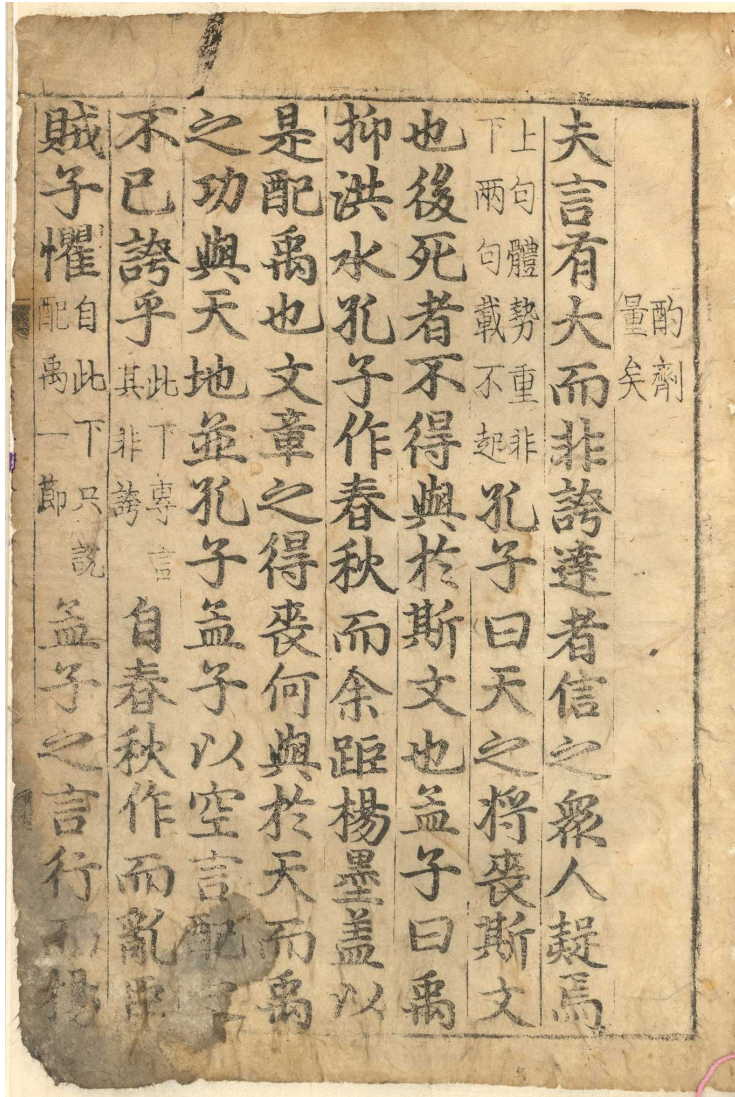 酌劑
量矣
夫言有大而非誇達者信之衆人疑焉
上句體勢重非
下兩句載不起
孔子曰天之將喪斯文
也後死者不得與於斯文也孟子曰禹
抑洪水孔子作春秋而余距楊墨盖以
是配禹也文章之得喪何與於天而禹
之功與天地並孔子孟子以空言配之
不已誇乎
此下專言
其非誇
自春秋作而亂臣
賊子懼
自此下只說
配禹一節
孟子之言行而楊